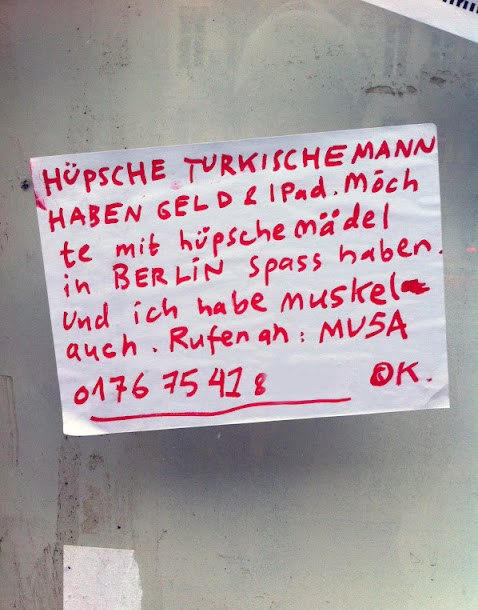 HÜPSCHE TURKISCHE MANN
HABEN GELD & IPad. Möch
te mit hüpsche mädel
in BERLiN spass haben.
und ich habe muskel
auch. Rufen an: MUSA
0176 75 41 8 OK.